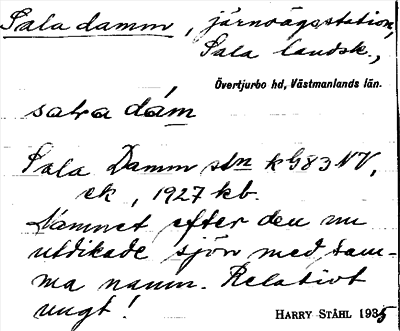 Sala damm, järnvägsstation,
Sala landsk.,
Övertjurbo hd, Västmanlands län.
sala dám
Sala Damm stn kG83NV,
ek, 1927 kb.
Namnet efter den nu
utdikade sjön med sam-
ma namn. Relativt
ungt!
HARRY STÅHL 1935